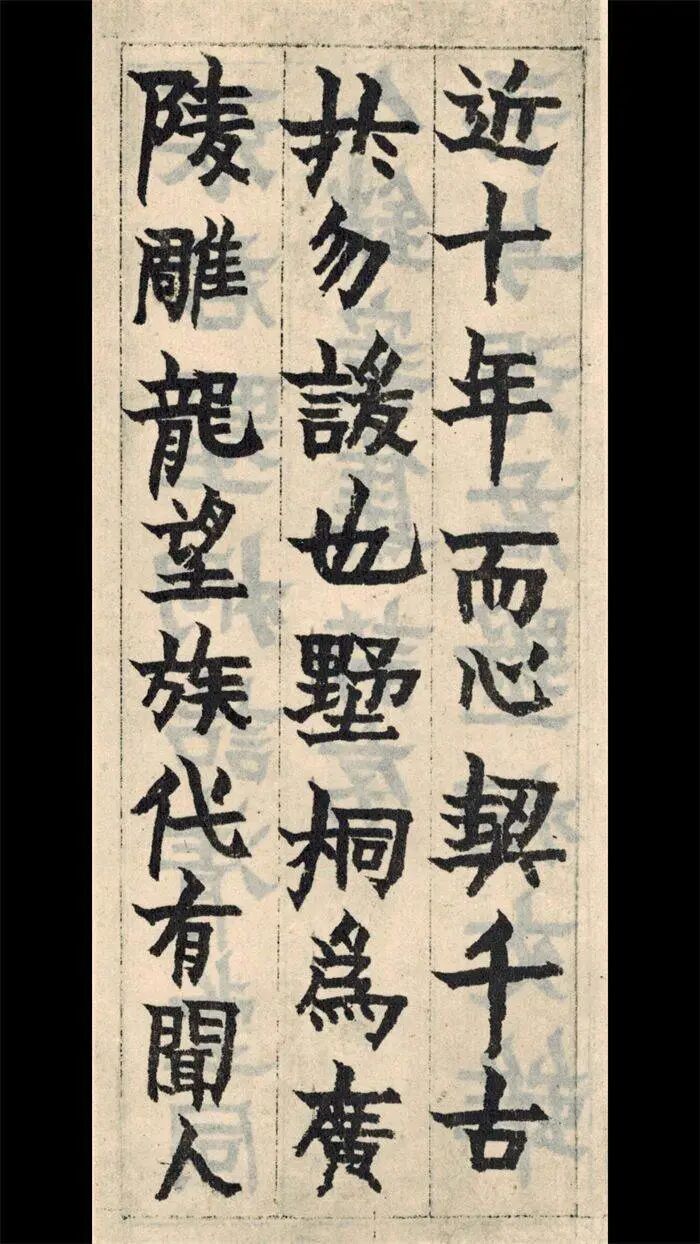 近十年而心契千古
共勿諼也墅桐為廣
陵雕龍望族代有聞人